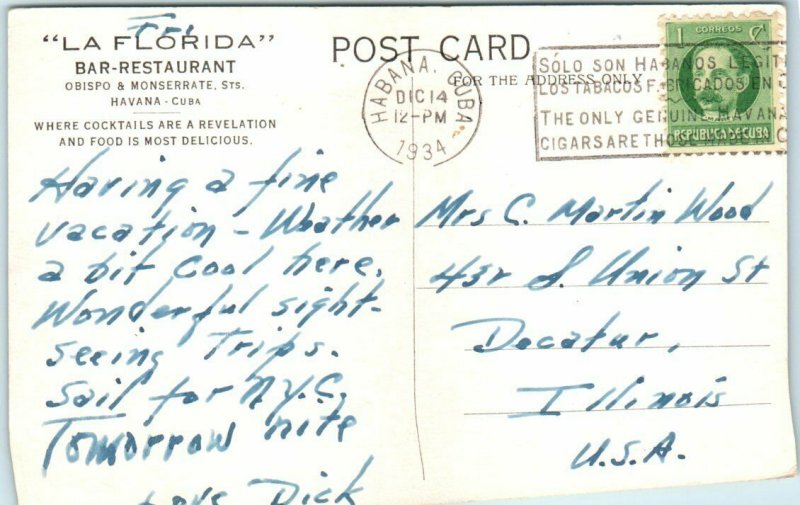 Fri
"LA FLORIDA"
BAR-RESTAURANT
OBISPO & MONSERRATE, STS.
HAVANA - CUBA
WHERE COCKTAILS ARE A REVELATION
AND FOOD IS MOST DELICIOUS.
POST CARD
FOR THE ADDRESS ONLY
HABANA, CUBA.
DIC 14
12-PM
1934
SÓLO SON HABANOS LEGITI
LOS TABACOS FABRICADOS EN
THE ONLY GENUINE HAVANA
CIGARS ARE THOSE
1 CORREOS ¢
REPUBLICA DE CUBA
Having a fine
vacation - Weather
a bit cool here.
Wonderful sight-
seeing Trips.
Sail for N.Y.C.
Tomorrow nite
Love Dick
Mrs C. Martin Wood
432 S. Union St
Decatur,
Illinois
U.S.A.